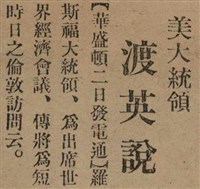 美大統領
渡英說
【華盛頓二日發電通】羅
斯福大統領、爲出席世
界經濟會議、傳將爲短
時日之倫敦訪問云。